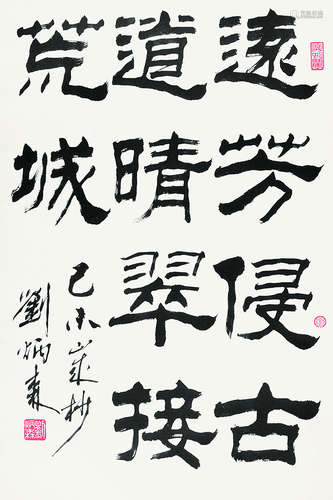 遠芳侵古
道晴翠接
荒城
己未歲杪
劉炳森